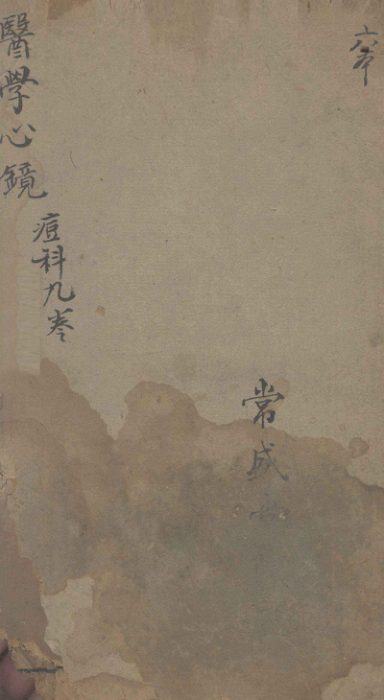 六本
常盛
醫學心鏡
痘科九卷